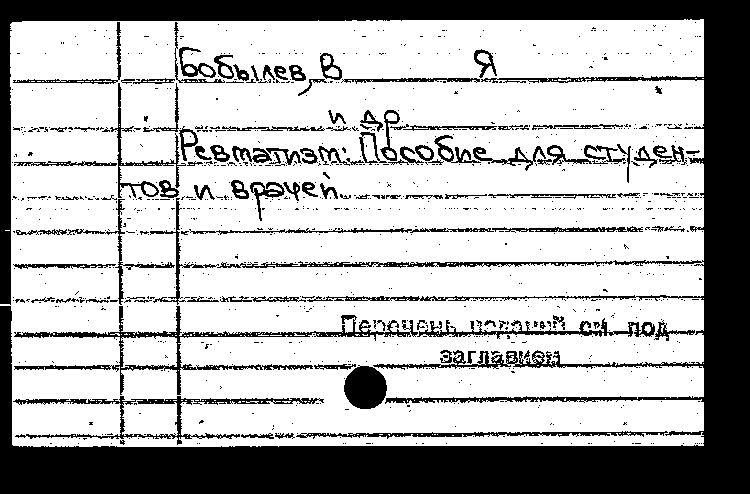 Бобылев, В Я
и др.
Ревматизм: Пособие для студен-
тов и врачей.
Перечень изданий см. под
заглавием